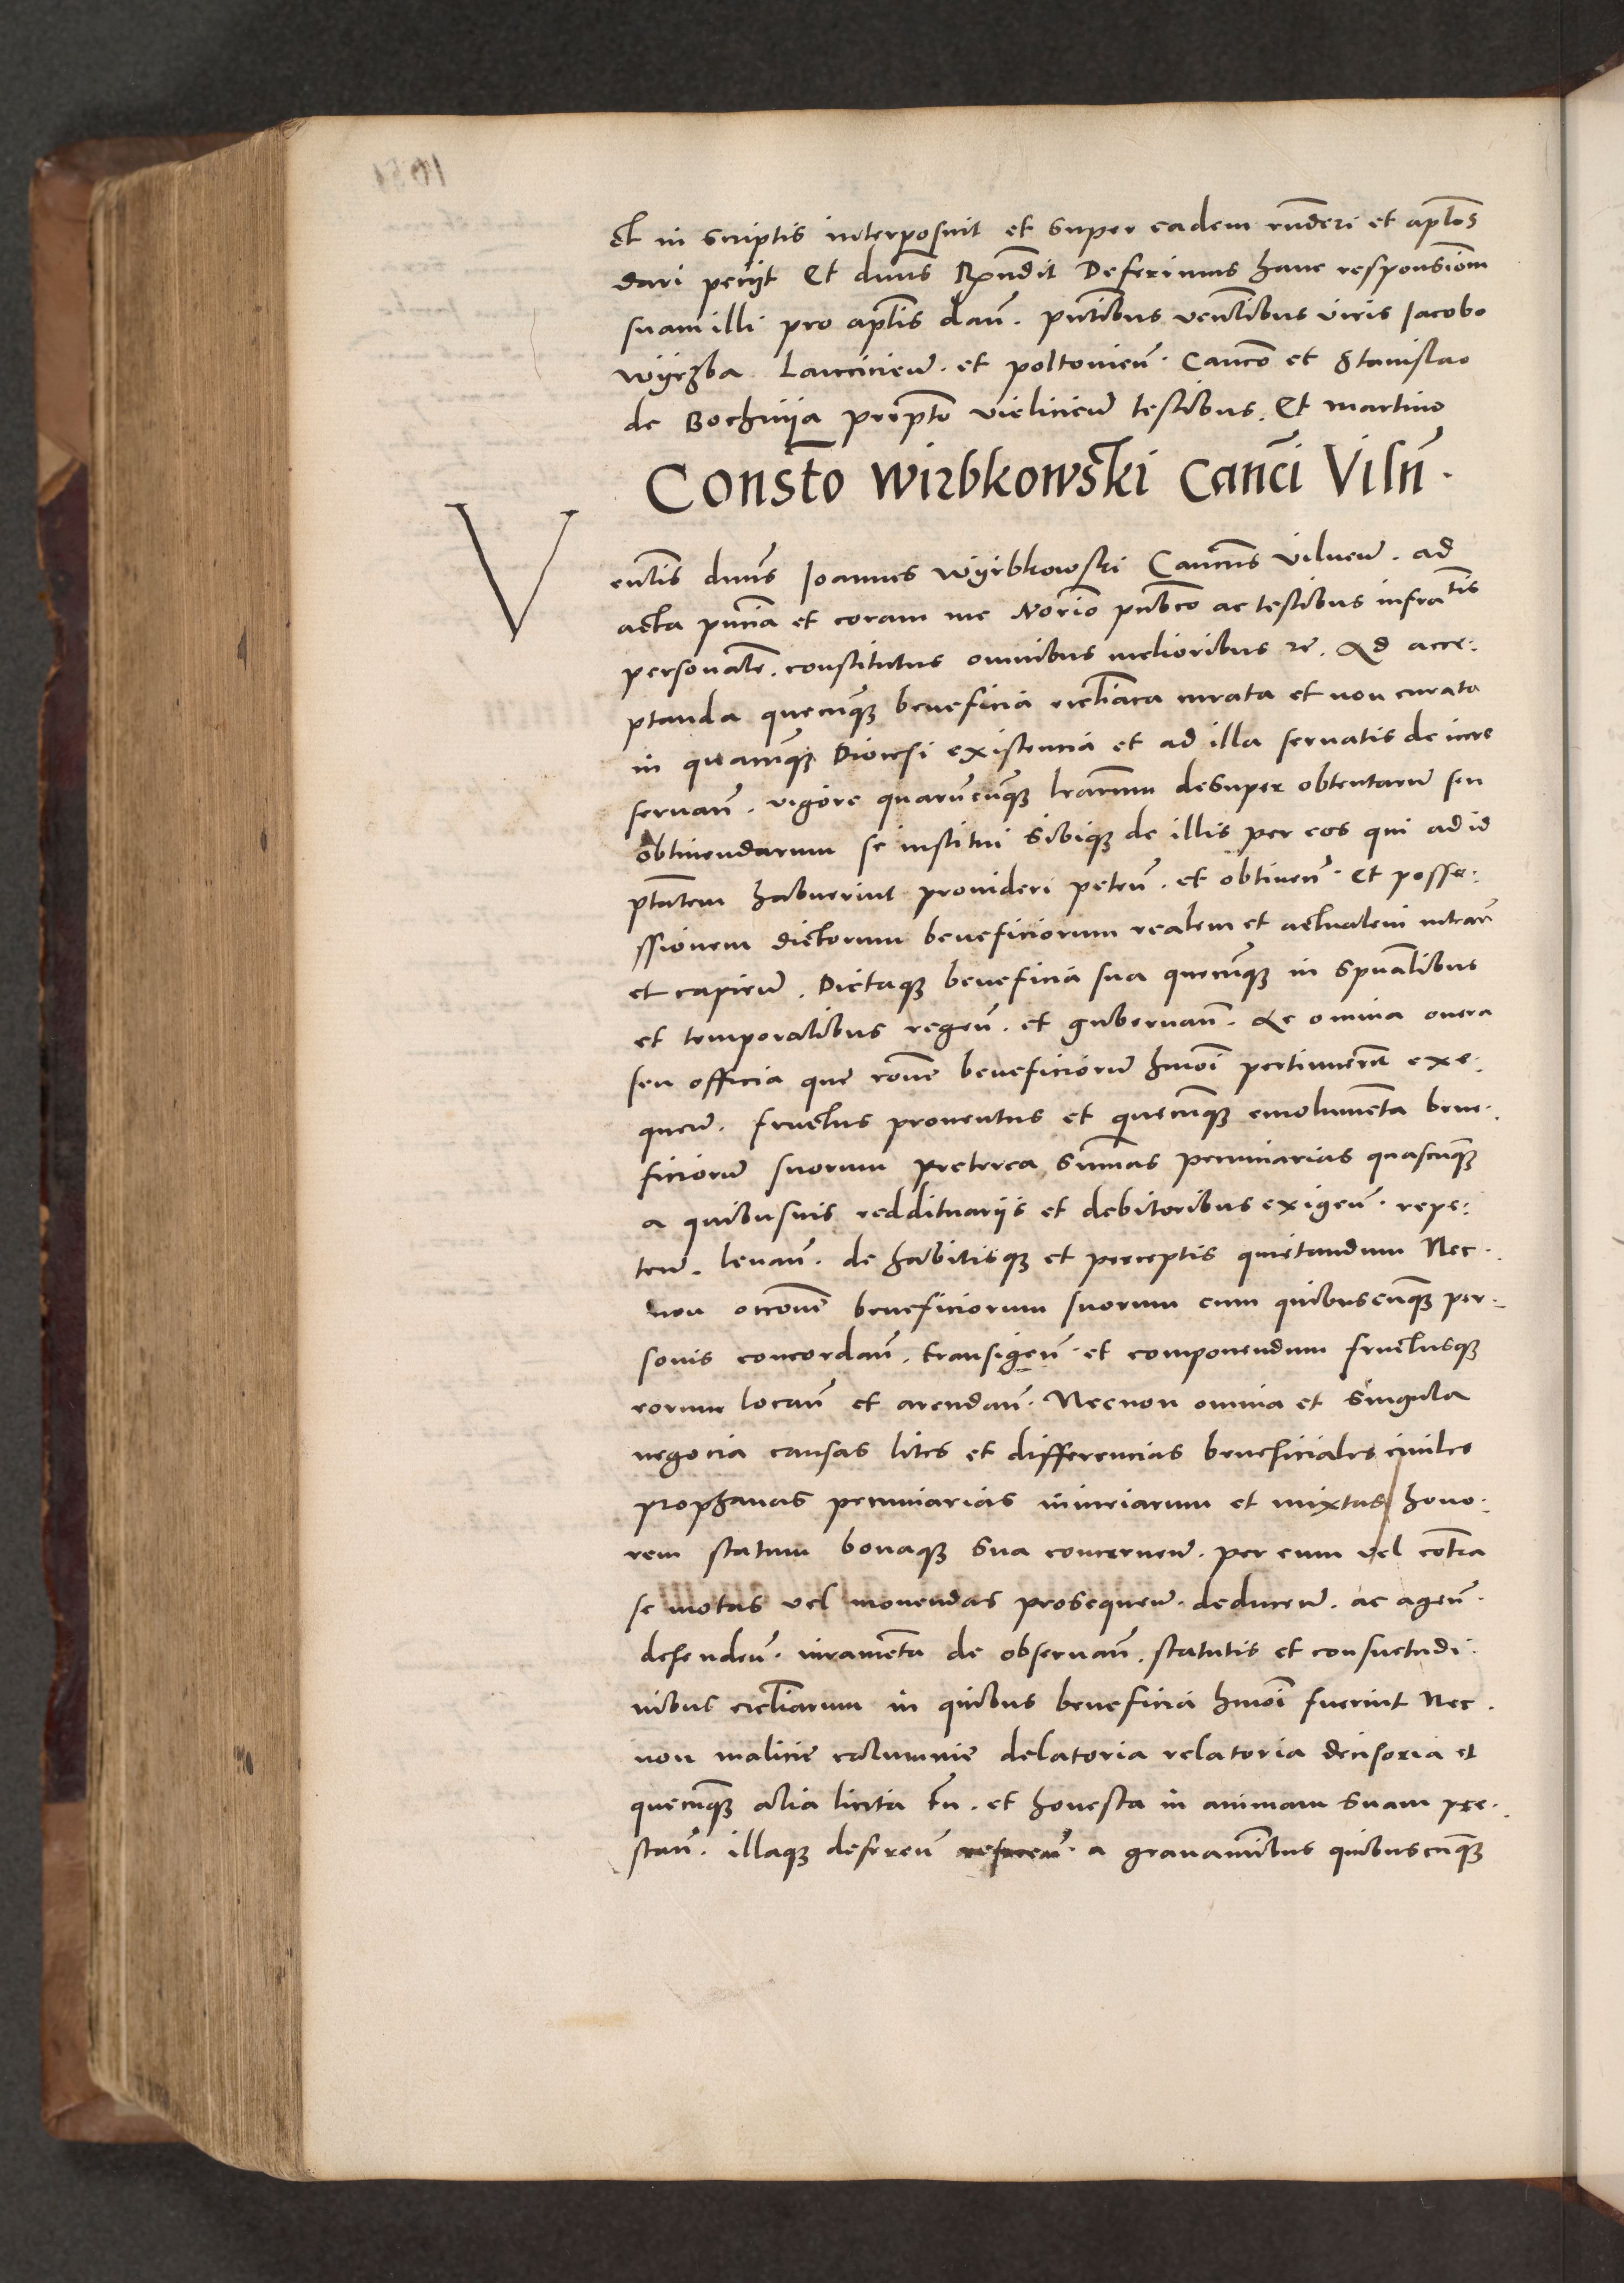 et in scriptis interposuit et super eadem rn̄deri et apłos
dari pecijt Et dnūs Rn̄dit Deferimus hanc responsiom̄
suam illi pro apłis dan̄. pn̄tibus ven̄libus viris Jacobo
wijrzba Lancicien̄. et poltovien̄. Canco et Stanislao
de Bochnija prep̄to vielicien̄ testibus. Et martino
Const̄o Wirbkowski Canci Viln̄.
Ven̄lis dnūs Joannes wijrbkowski Cancūs vilnen̄. ad
acta pn̄cia et coram me Nor̄io pub̄co ac testibus infra tis
personal̄r. constitutus omnibus melioribus r̄e. Ad acce:
ptanda quecunq̄ beneficia eccl̄iaca curata et non curata
in quacunq̄ Diocesi existencia et ad illa servatis de iure
servan̄. vigore quarūcunq̄ l̄rarum desuper obtentarū seu
obtinendarum se institui sibiq̄ de illis per eos qui ad id
pt̄atem habuerint provideri peten̄. et obtinen̄. Et posse:
ssionem dictorum beneficiorum realem et actualem intran̄
et capien̄. Dictaq̄ beneficia sua quecunq̄ in spūalibus
et temporalibus regen̄. et gubernan̄. Ac omnia onera
seu officia que rōne beneficiorū hmōi pertinuerint exe.
quen̄. fructus proventus et quecunq̄ emolumenta bene.
ficiorū suorum preterea sum̄as pecuniarias quascunq̄
a quibusuis reddituarijs et debitoribus exigen̄. repe:
ten̄. levan̄. de habitisq̄ et perceptis quietandum Nec.
non occ̄one beneficiorum suorum cum quibuscunq̄ per.
sonis concordan̄. transigen̄. et componendum fructusq̄
eorum locan̄ et arendan̄. Necnon omnia et singula
negocia causas lites et differencias beneficiales civiles
prophanas pecuniarias iniuriarum et mixtas hono.
rem statum bonaq̄ sua concernen̄. per eum vel cont̄ra
se motas vel movendas prosequen̄. deducen̄. ac agen̄.
defenden̄. iuramenta de observan̄. statutis et consuetudi.
nibus eccl̄iarum in quibus beneficia hmōi fuerint Nec.
non malicie calumnie delatoria relatoria decisoria et
quecunq̄ alia licita tn̄. et honesta in animam suam pre.
stan̄. illaq̄ deferen̄ referen̄. a gravaminibus quibuscunq̄